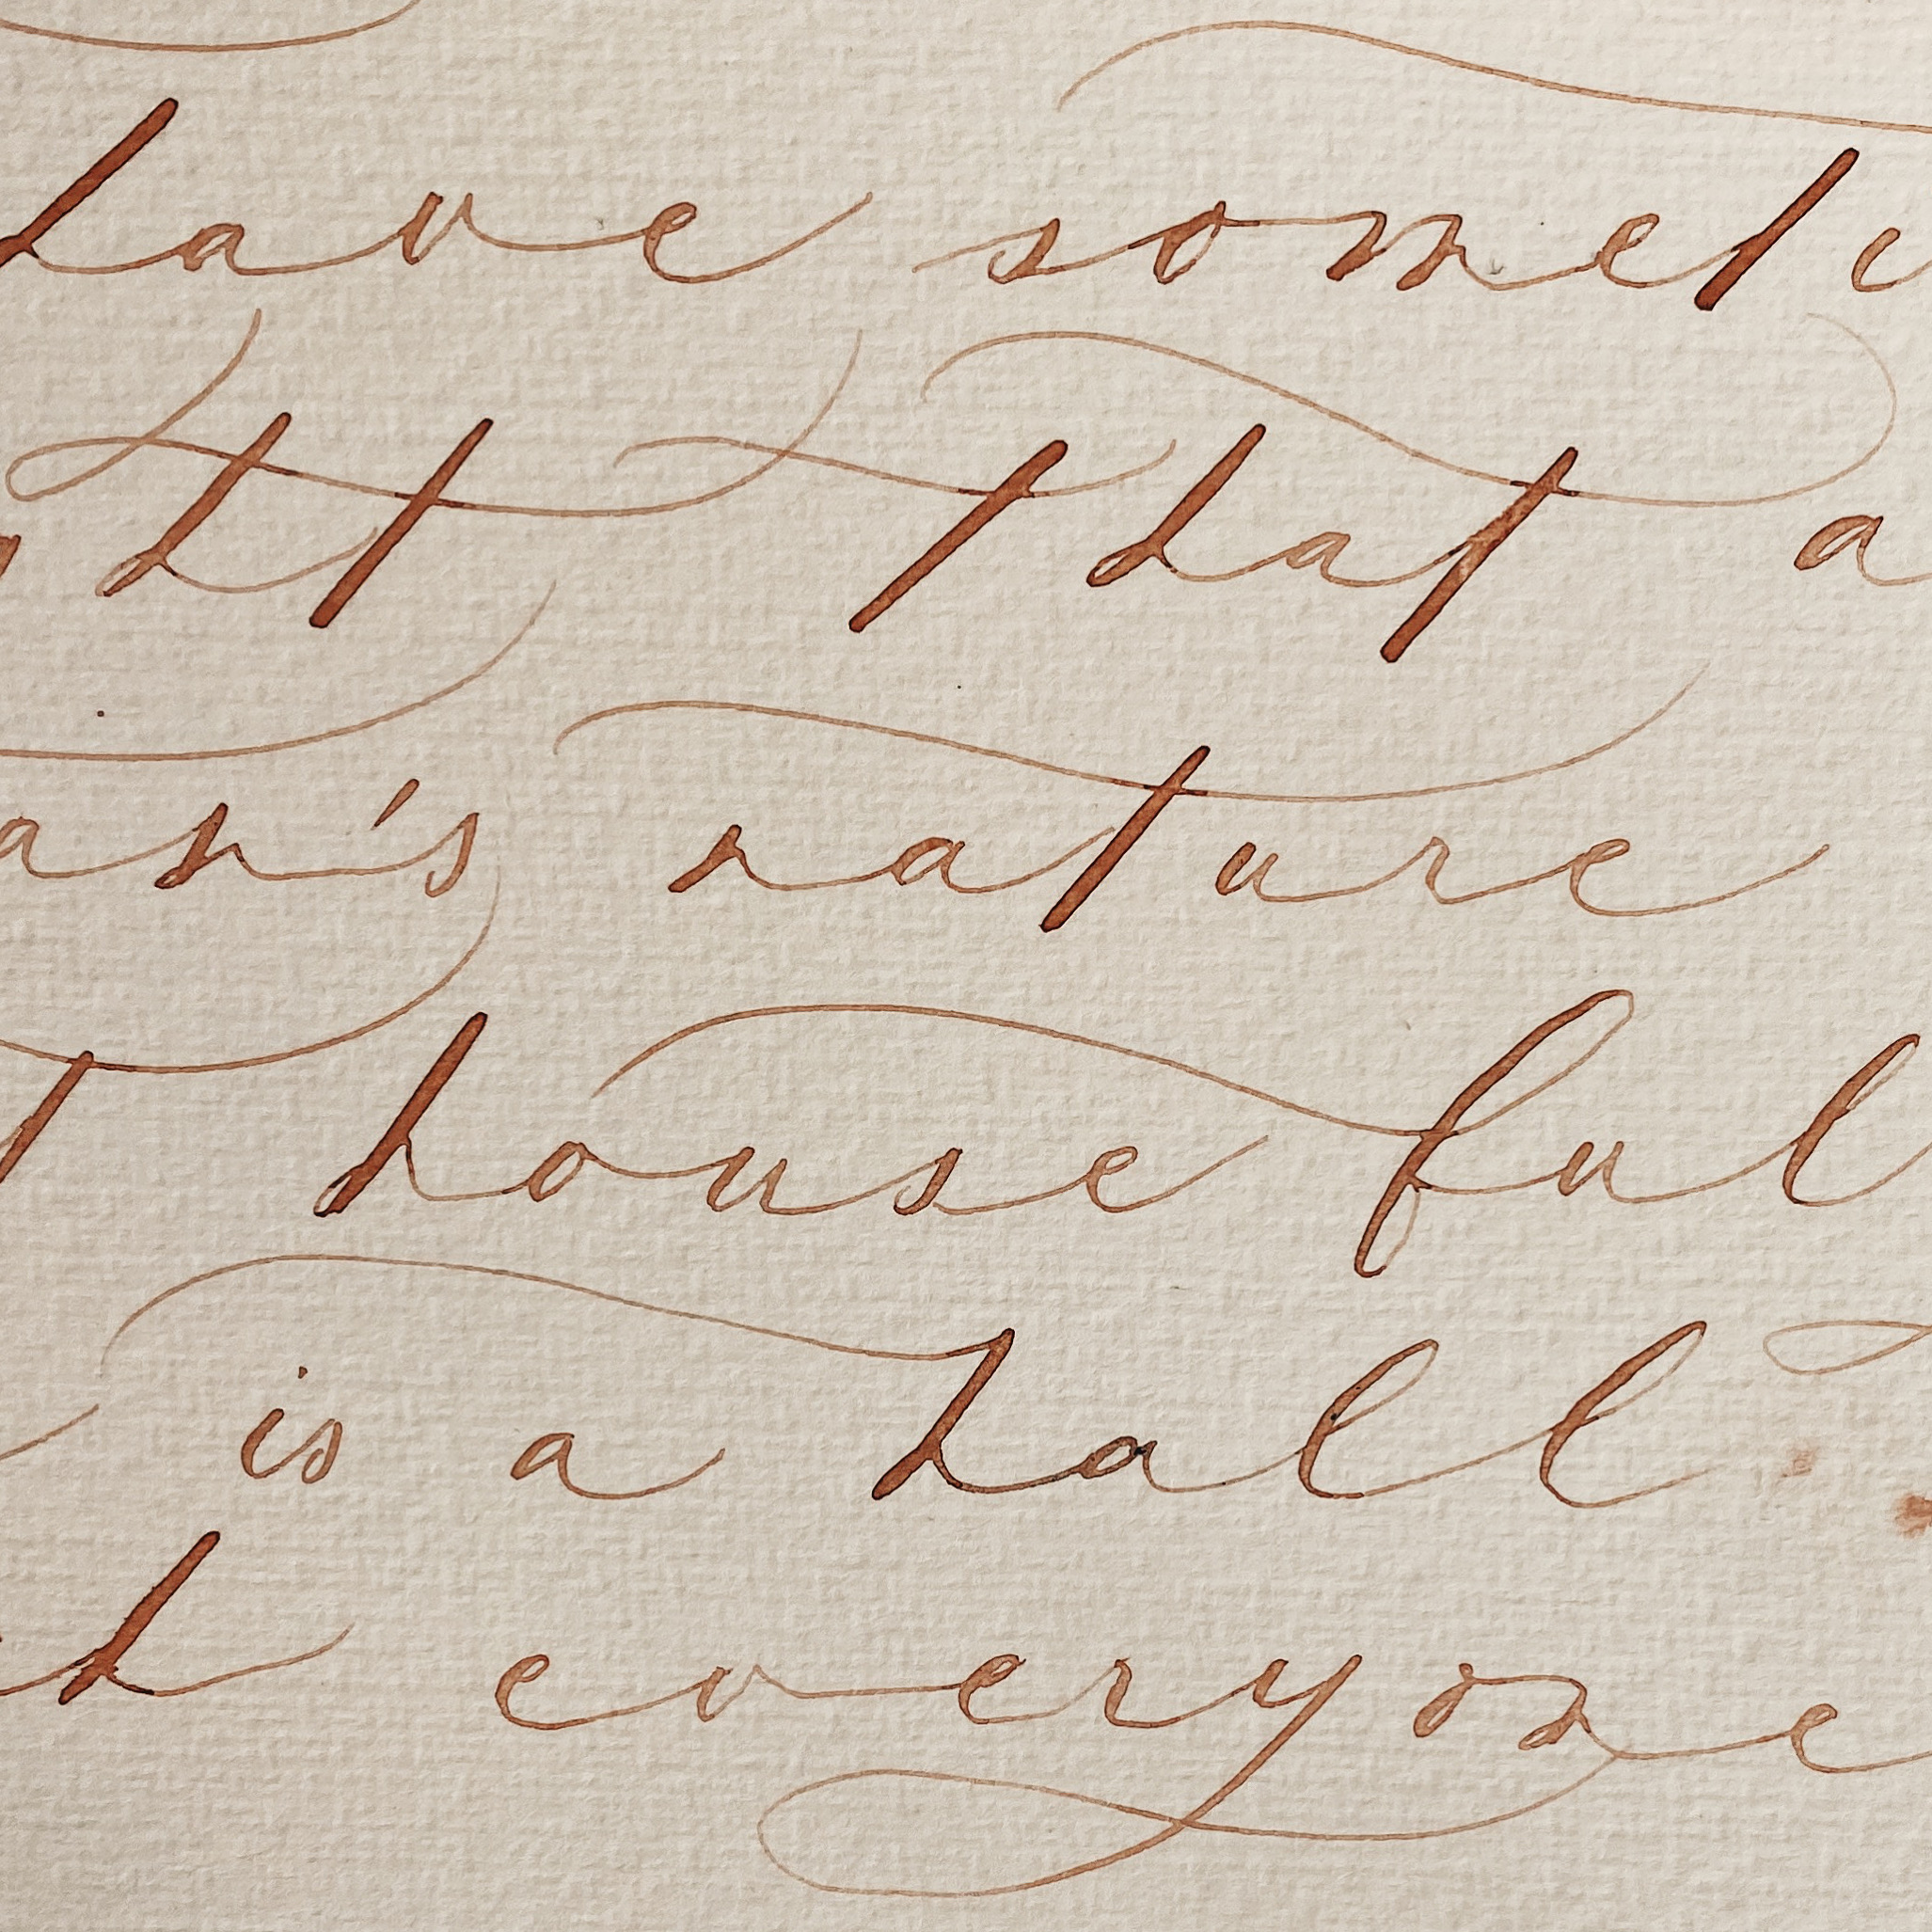 have someti
ght that a
an's nature
t house ful
is a hall
h everyone